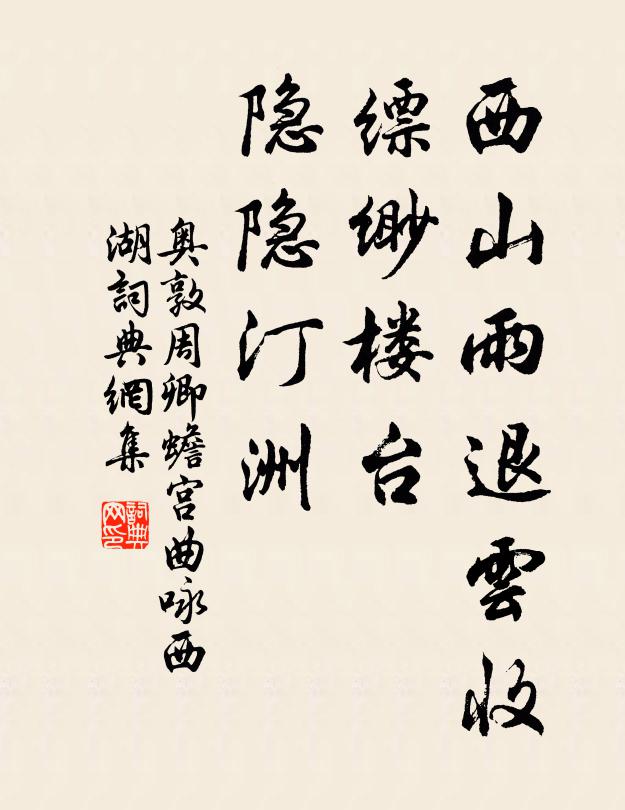 西山雨退雲收
缥缈楼台
隐隐汀洲
奥敦周卿蟾宫曲咏西
湖詞典網集
詞典网印